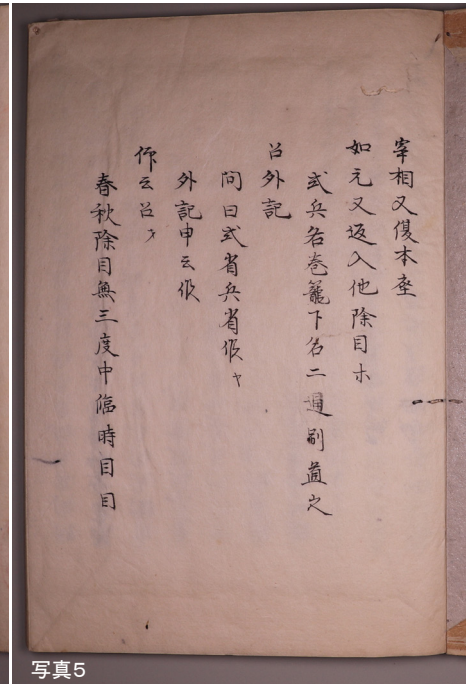 宰相又復本座
如元又返入他除目ホ
式兵各巻籠下名二通副遣之
召外記
問曰式省兵省候ヤ
外記申云候
仰云召セ
春秋除目無三度中臨時目目
写真5